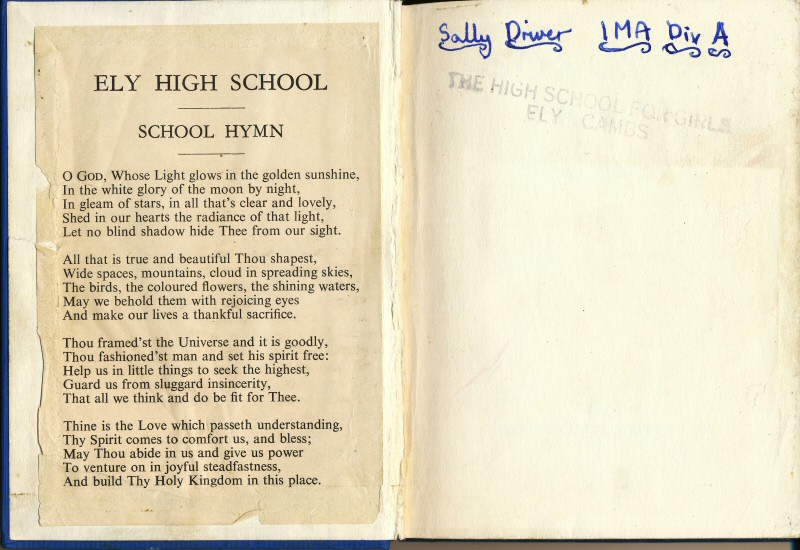 ELY HIGH SCHOOL
SCHOOL HYMN
O GOD, Whose Light glows in the golden sunshine,
In the white glory of the moon by night,
In gleam of stars, in all that's clear and lovely,
Shed in our hearts the radiance of that light,
Let no blind shadow hide Thee from our sight.
All that is true and beautiful Thou shapest,
Wide spaces, mountains, cloud in spreading skies,
The birds, the coloured flowers, the shining waters,
May we behold them with rejoicing eyes
And make our lives a thankful sacrifice.
Thou framed'st the Universe and it is goodly,
Thou fashioned'st man and set his spirit free:
Help us in little things to seek the highest,
Guard us from sluggard insincerity,
That all we think and do be fit for Thee.
Thine is the Love which passeth understanding,
Thy Spirit comes to comfort us, and bless;
May Thou abide in us and give us power
To venture on in joyful steadfastness,
And build Thy Holy Kingdom in this place.
Sally Driver 1MA Div A
THE HIGH SCHOOL FOR GIRLS
ELY CAMBS